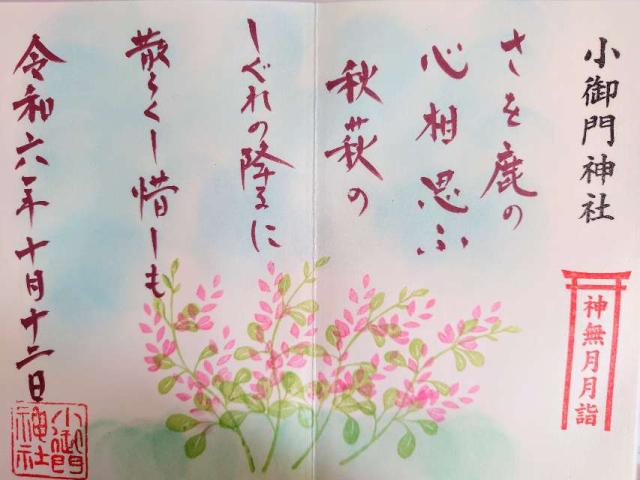 小御門神社
神無月月詣
さを鹿の
心相思ふ
秋萩の
しぐれの降るに
散らくし惜しも
令和六年十月十二日
小御門
神社